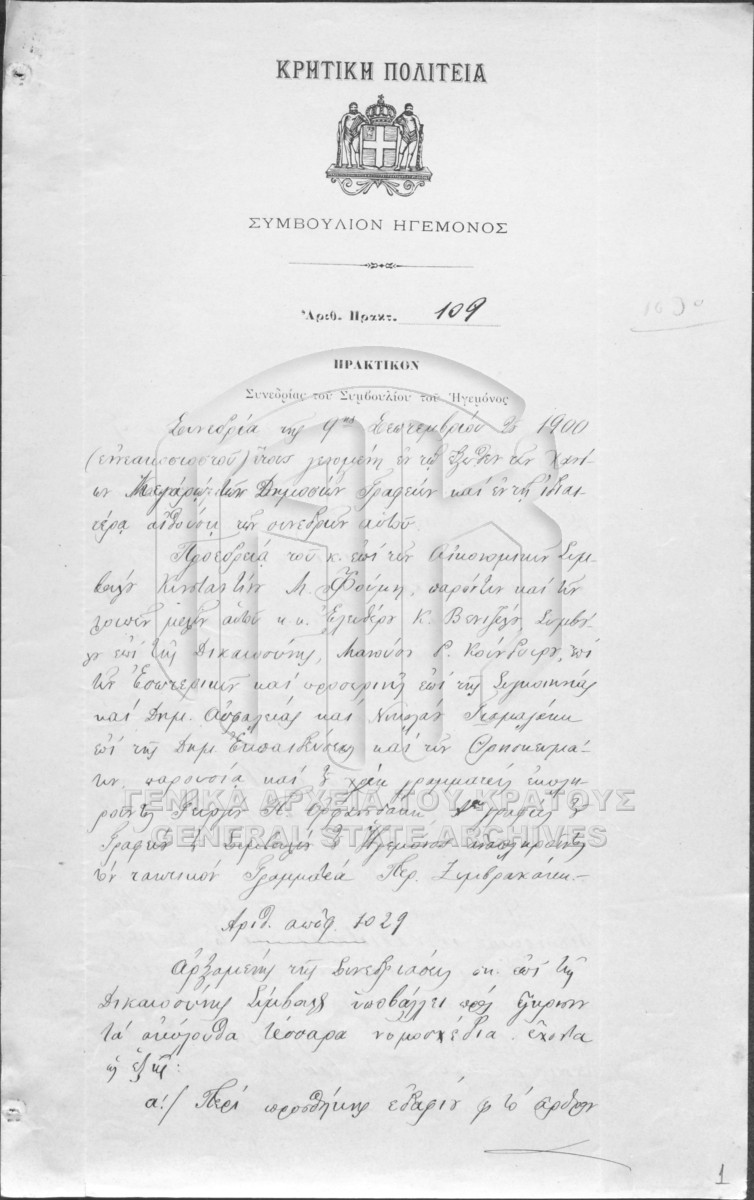 ΚΡΗΤΙΚΗ ΠΟΛΙΤΕΙΑ
ΣΥΜΒΟΥΛΙΟΝ ΗΓΕΜΟΝΟΣ
Ἀριθ. Πρακτ. 109
ΠΡΑΚΤΙΚΟΝ
Συνεδρίας τοῦ Συμβουλίου τοῦ Ἡγεμόνος
Συνεδρία τῆς 9ης Σεπτεμβρίου 1900
ἔτους γενομένη ἐν τῷ ἔξωθεν τῶν Χανί-
ων Μεγάρῳ τῶν Δημοσίων Γραφείων καὶ ἐν τῇ ἰδιαι-
τέρᾳ αἰθούσῃ τῶν συνεδριῶν αὐτοῦ.
Προεδρείᾳ τοῦ κ. ἐπὶ τῶν Οἰκονομικῶν Συμ-
βούλου Κωνσταντίνου Μ. Φούμη, παρόντων καὶ τῶν
λοιπῶν μελῶν αὐτοῦ κ.κ. Ἐλευθερίου Κ. Βενιζέλου, Συμβού-
λου ἐπὶ τῆς Δικαιοσύνης, Μανούσου Ρ. Κούνδουρου, ἐπὶ
τῶν Ἐσωτερικῶν καὶ προσωρινῶς ἐπὶ τῆς Συγκοινωνίας
καὶ Δημ. Ἀσφαλείας καὶ Νικολάου Γιαμαλάκη
ἐπὶ τῆς Δημ. Ἐκπαιδεύσεως καὶ τῶν Θρησκευμά-
των, παρουσίᾳ καὶ τοῦ χρέη γραμματέως ἐκπλη-
ροῦντος
ΓΕΝΙΚΑ ΑΡΧΕΙΑ ΤΟΥ ΚΡΑΤΟΥΣ
GENERAL STATE ARCHIVES
τὸν τακτικὸν Γραμματέα Περ. Ζυμβρακάκη.–
Ἀριθ. ἀποφ. 1029
Ἀρξαμένης τῆς Συνεδριάσεως ὁ κ. ἐπὶ τῆς
Δικαιοσύνης Σύμβουλος ὑποβάλλει πρὸς ἔγκρισιν
τὰ ἀκόλουθα τέσσαρα νομοσχέδια ἔχοντα
ὡς ἑξῆς:
α!/ Περὶ προσθήκης ἐδαφίου εἰς τὸ ἄρθρον
1